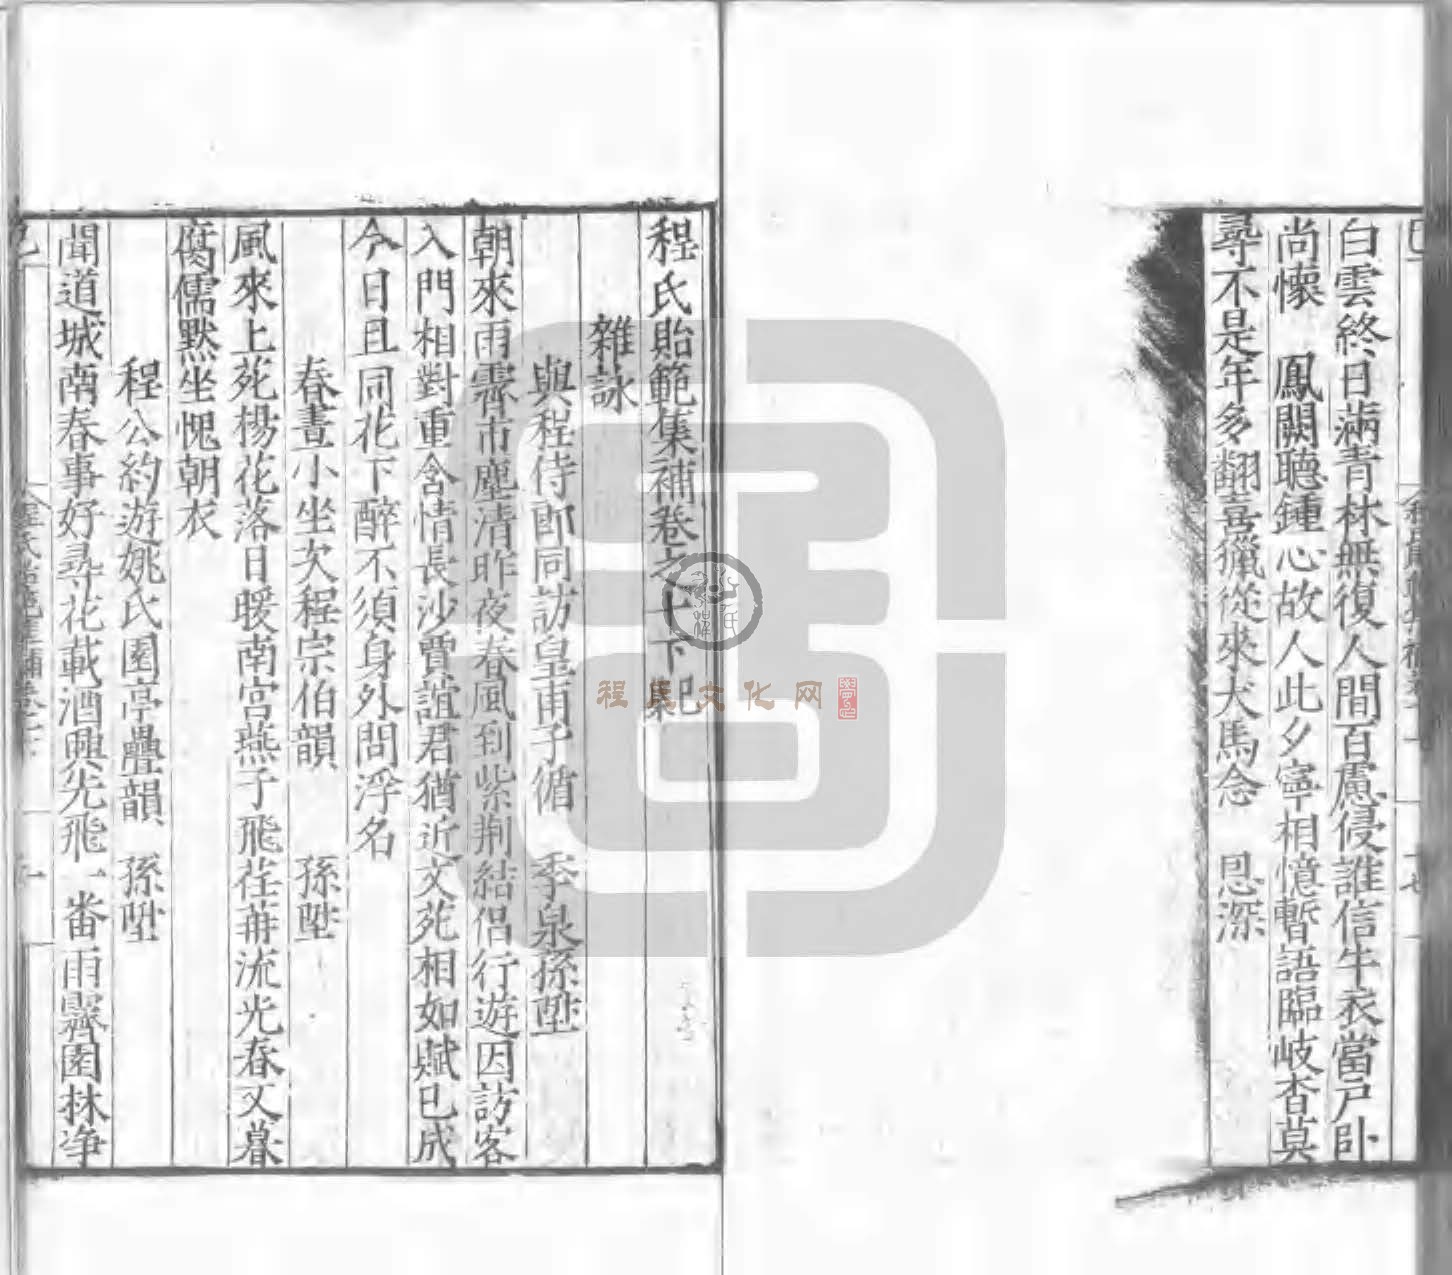 白雲終日滿青林無復人間百慮侵誰信牛衣當戶卧
尚懷　鳳闕聽鍾心故人此夕寧相憶暫語臨岐杳莫
尋不是年多翻喜獵從來犬馬念　恩深
程氏貽範集補卷之七下　已集
雜詠
與程侍郎同訪皇甫子循　季泉孫陞
朝來雨霽市塵清昨夜春風到紫荆結侣行遊因訪客
入門相對重含情長沙賈誼君猶近文苑相如賦已成
今日且同花下醉不須身外問浮名
春晝小坐次程宗伯韻　孫陞
風來上苑楊花落日暖南宫燕子飛荏苒流光春又暮
腐儒默坐愧朝衣
程公約遊姚氏園亭疊韻　孫陞
聞道城南春事好尋花載酒興先飛一番雨霽園林净
程氏文化网